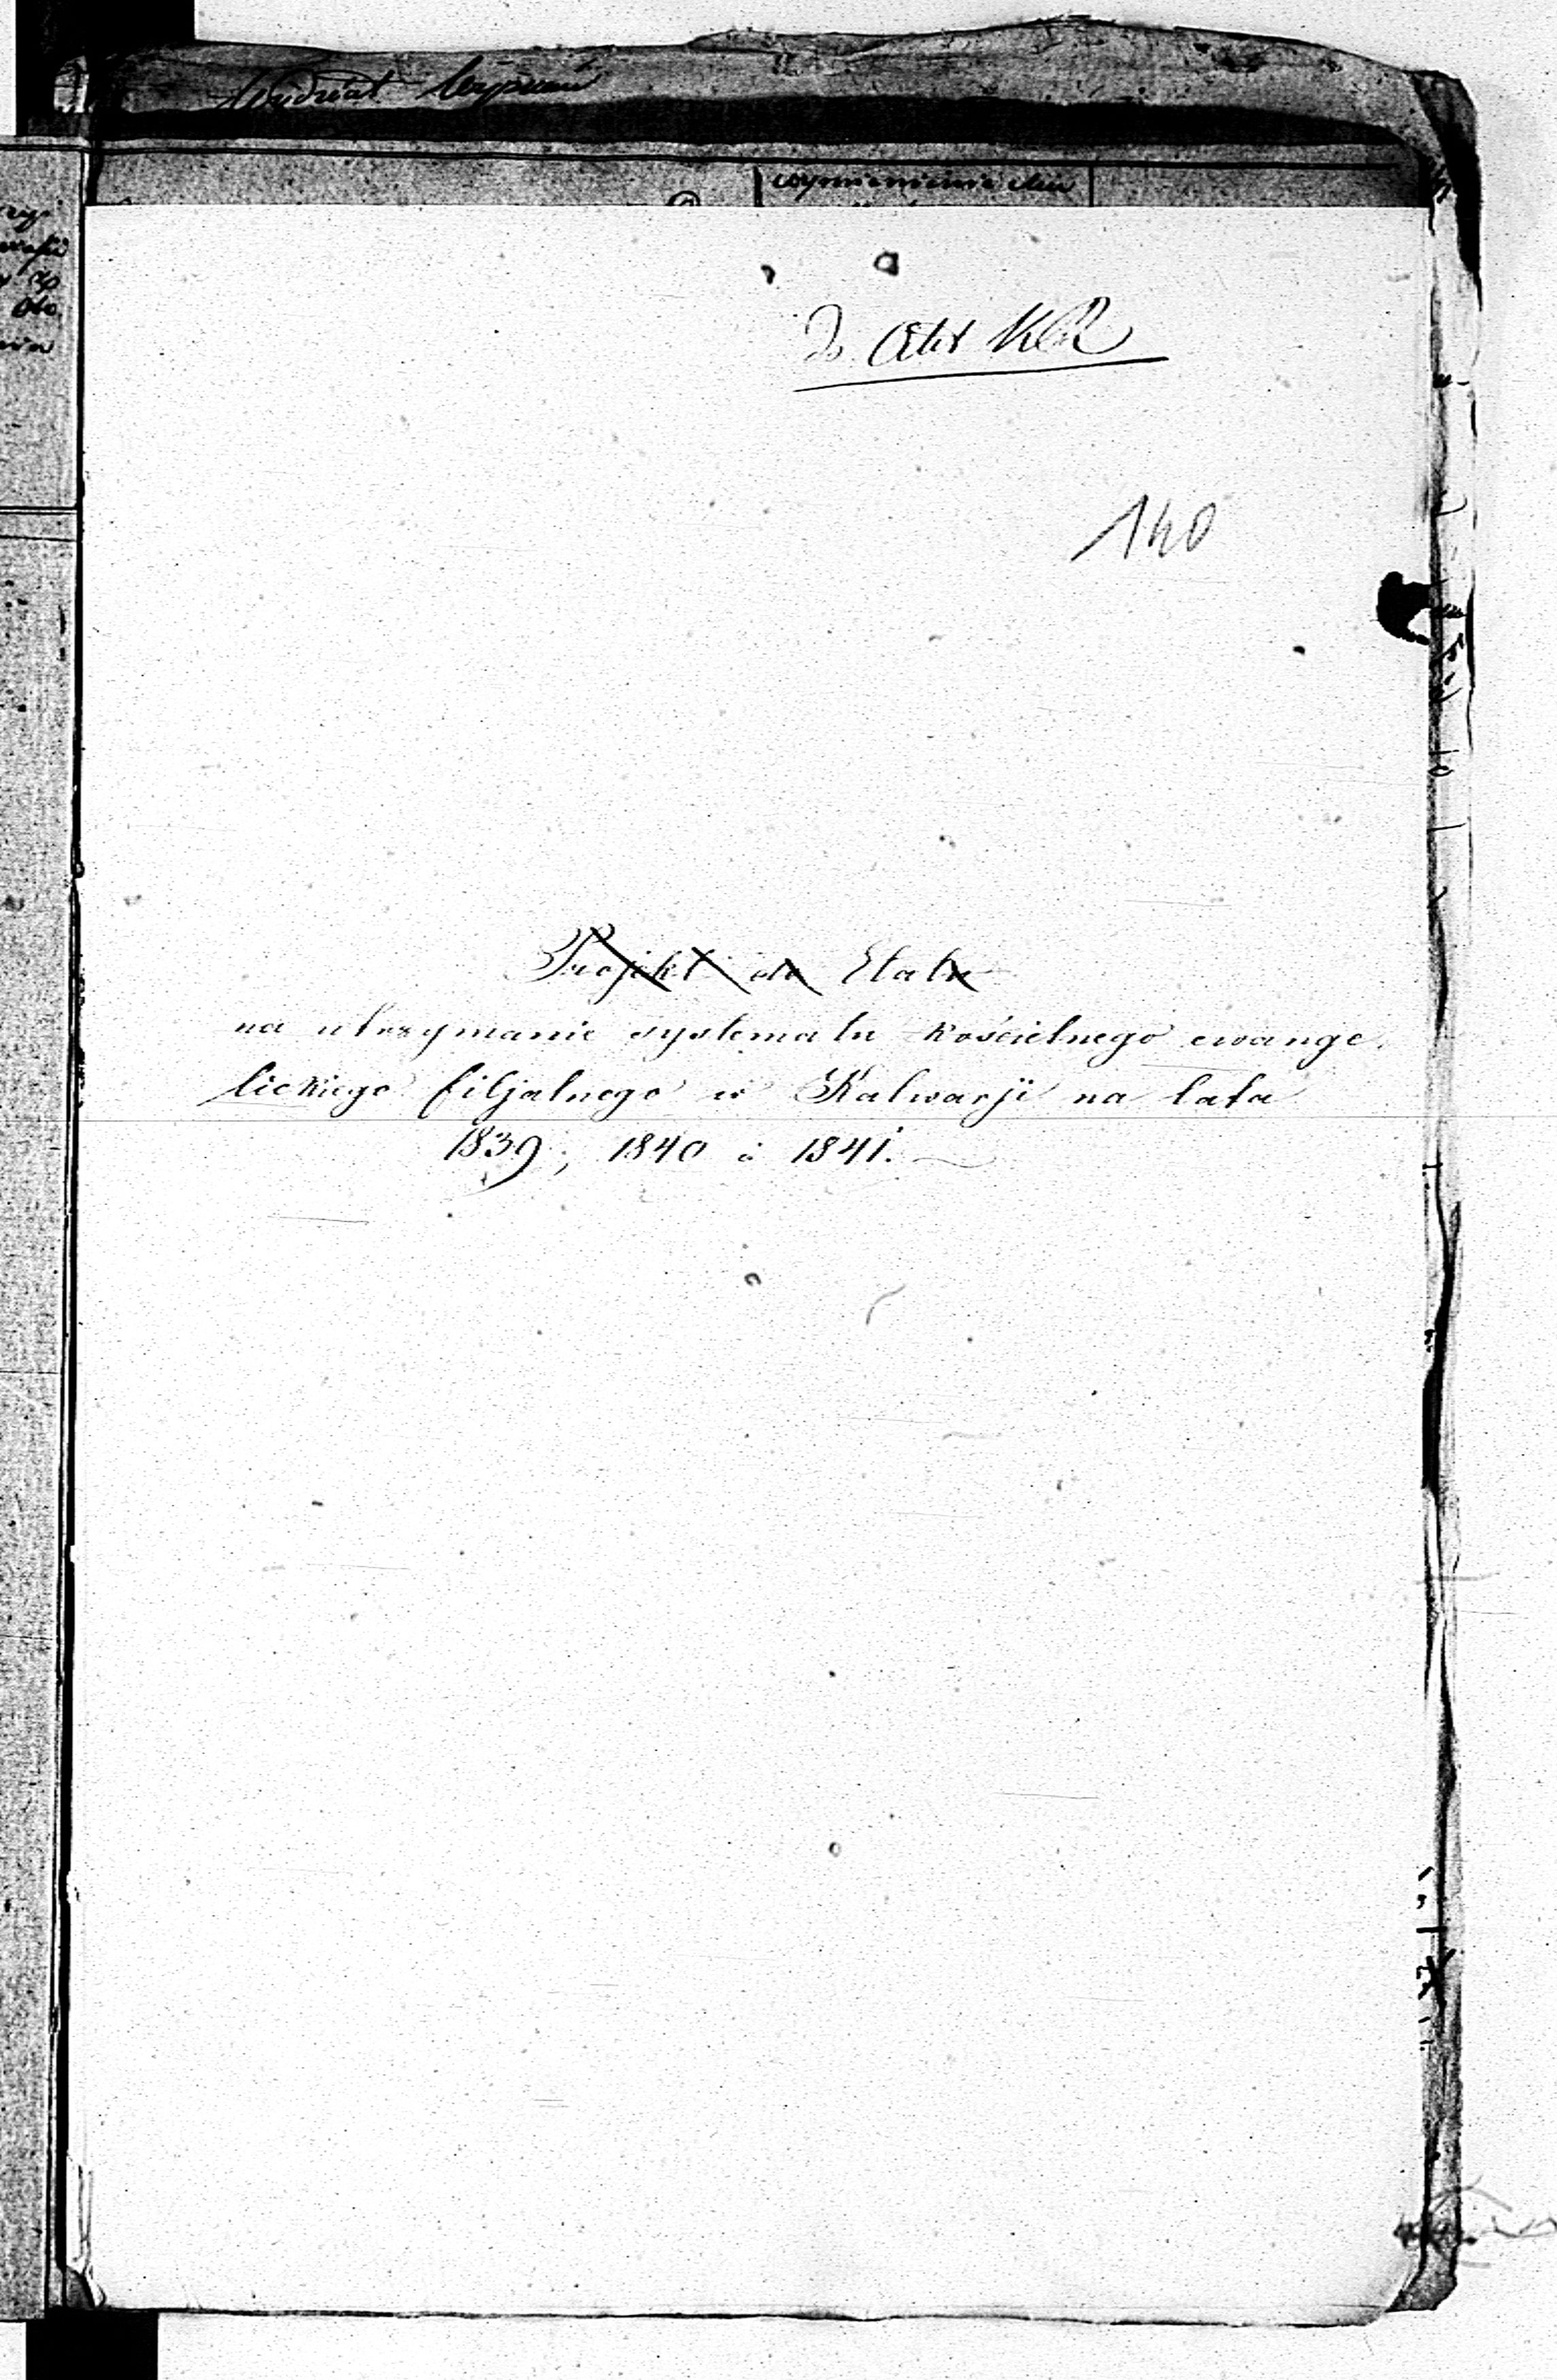 wymienienie
Do Akt KR
140
Projekt do Etatu
na utrzymanie systematu kościelnego ewange
lickiego filjalnego w Kalwarji na lata
1839, 1840 i 1841.